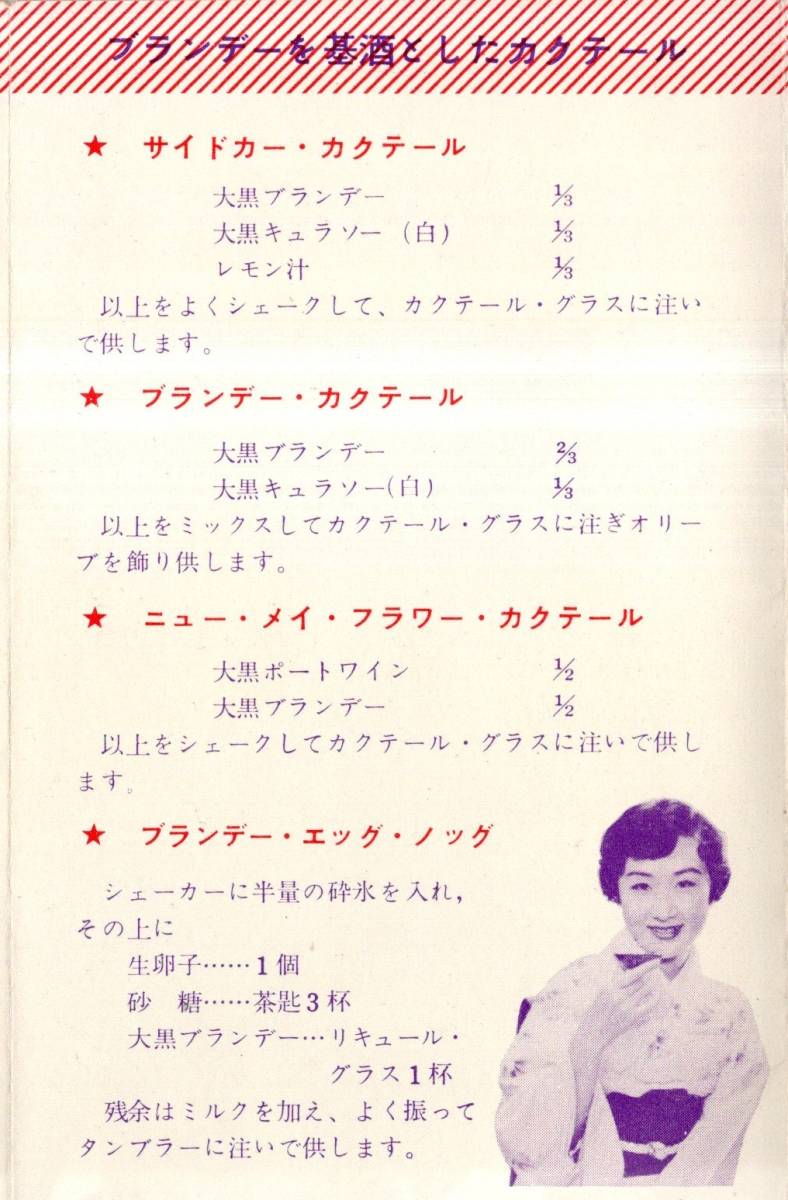 ブランデーを基酒としたカクテール
★ サイドカー・カクテール
大黒ブランデー ⅓
大黒キュラソー (白) ⅓
レモン汁 ⅓
以上をよくシェークして、カクテール・グラスに注い
で供します。
★ ブランデー・カクテール
大黒ブランデー ⅔
大黒キュラソー(白) ⅓
以上をミックスしてカクテール・グラスに注ぎオリー
ブを飾り供します。
★ ニュー・メイ・フラワー・カクテール
大黒ポートワイン ½
大黒ブランデー ½
以上をシェークしてカクテール・グラスに注いで供し
ます。
★ ブランデー・エッグ・ノッグ
シェーカーに半量の砕氷を入れ,
その上に
生卵子……1個
砂 糖……茶匙3杯
大黒ブランデー…リキュール・
グラス1杯
残余はミルクを加え、よく振って
タンブラーに注いで供します。